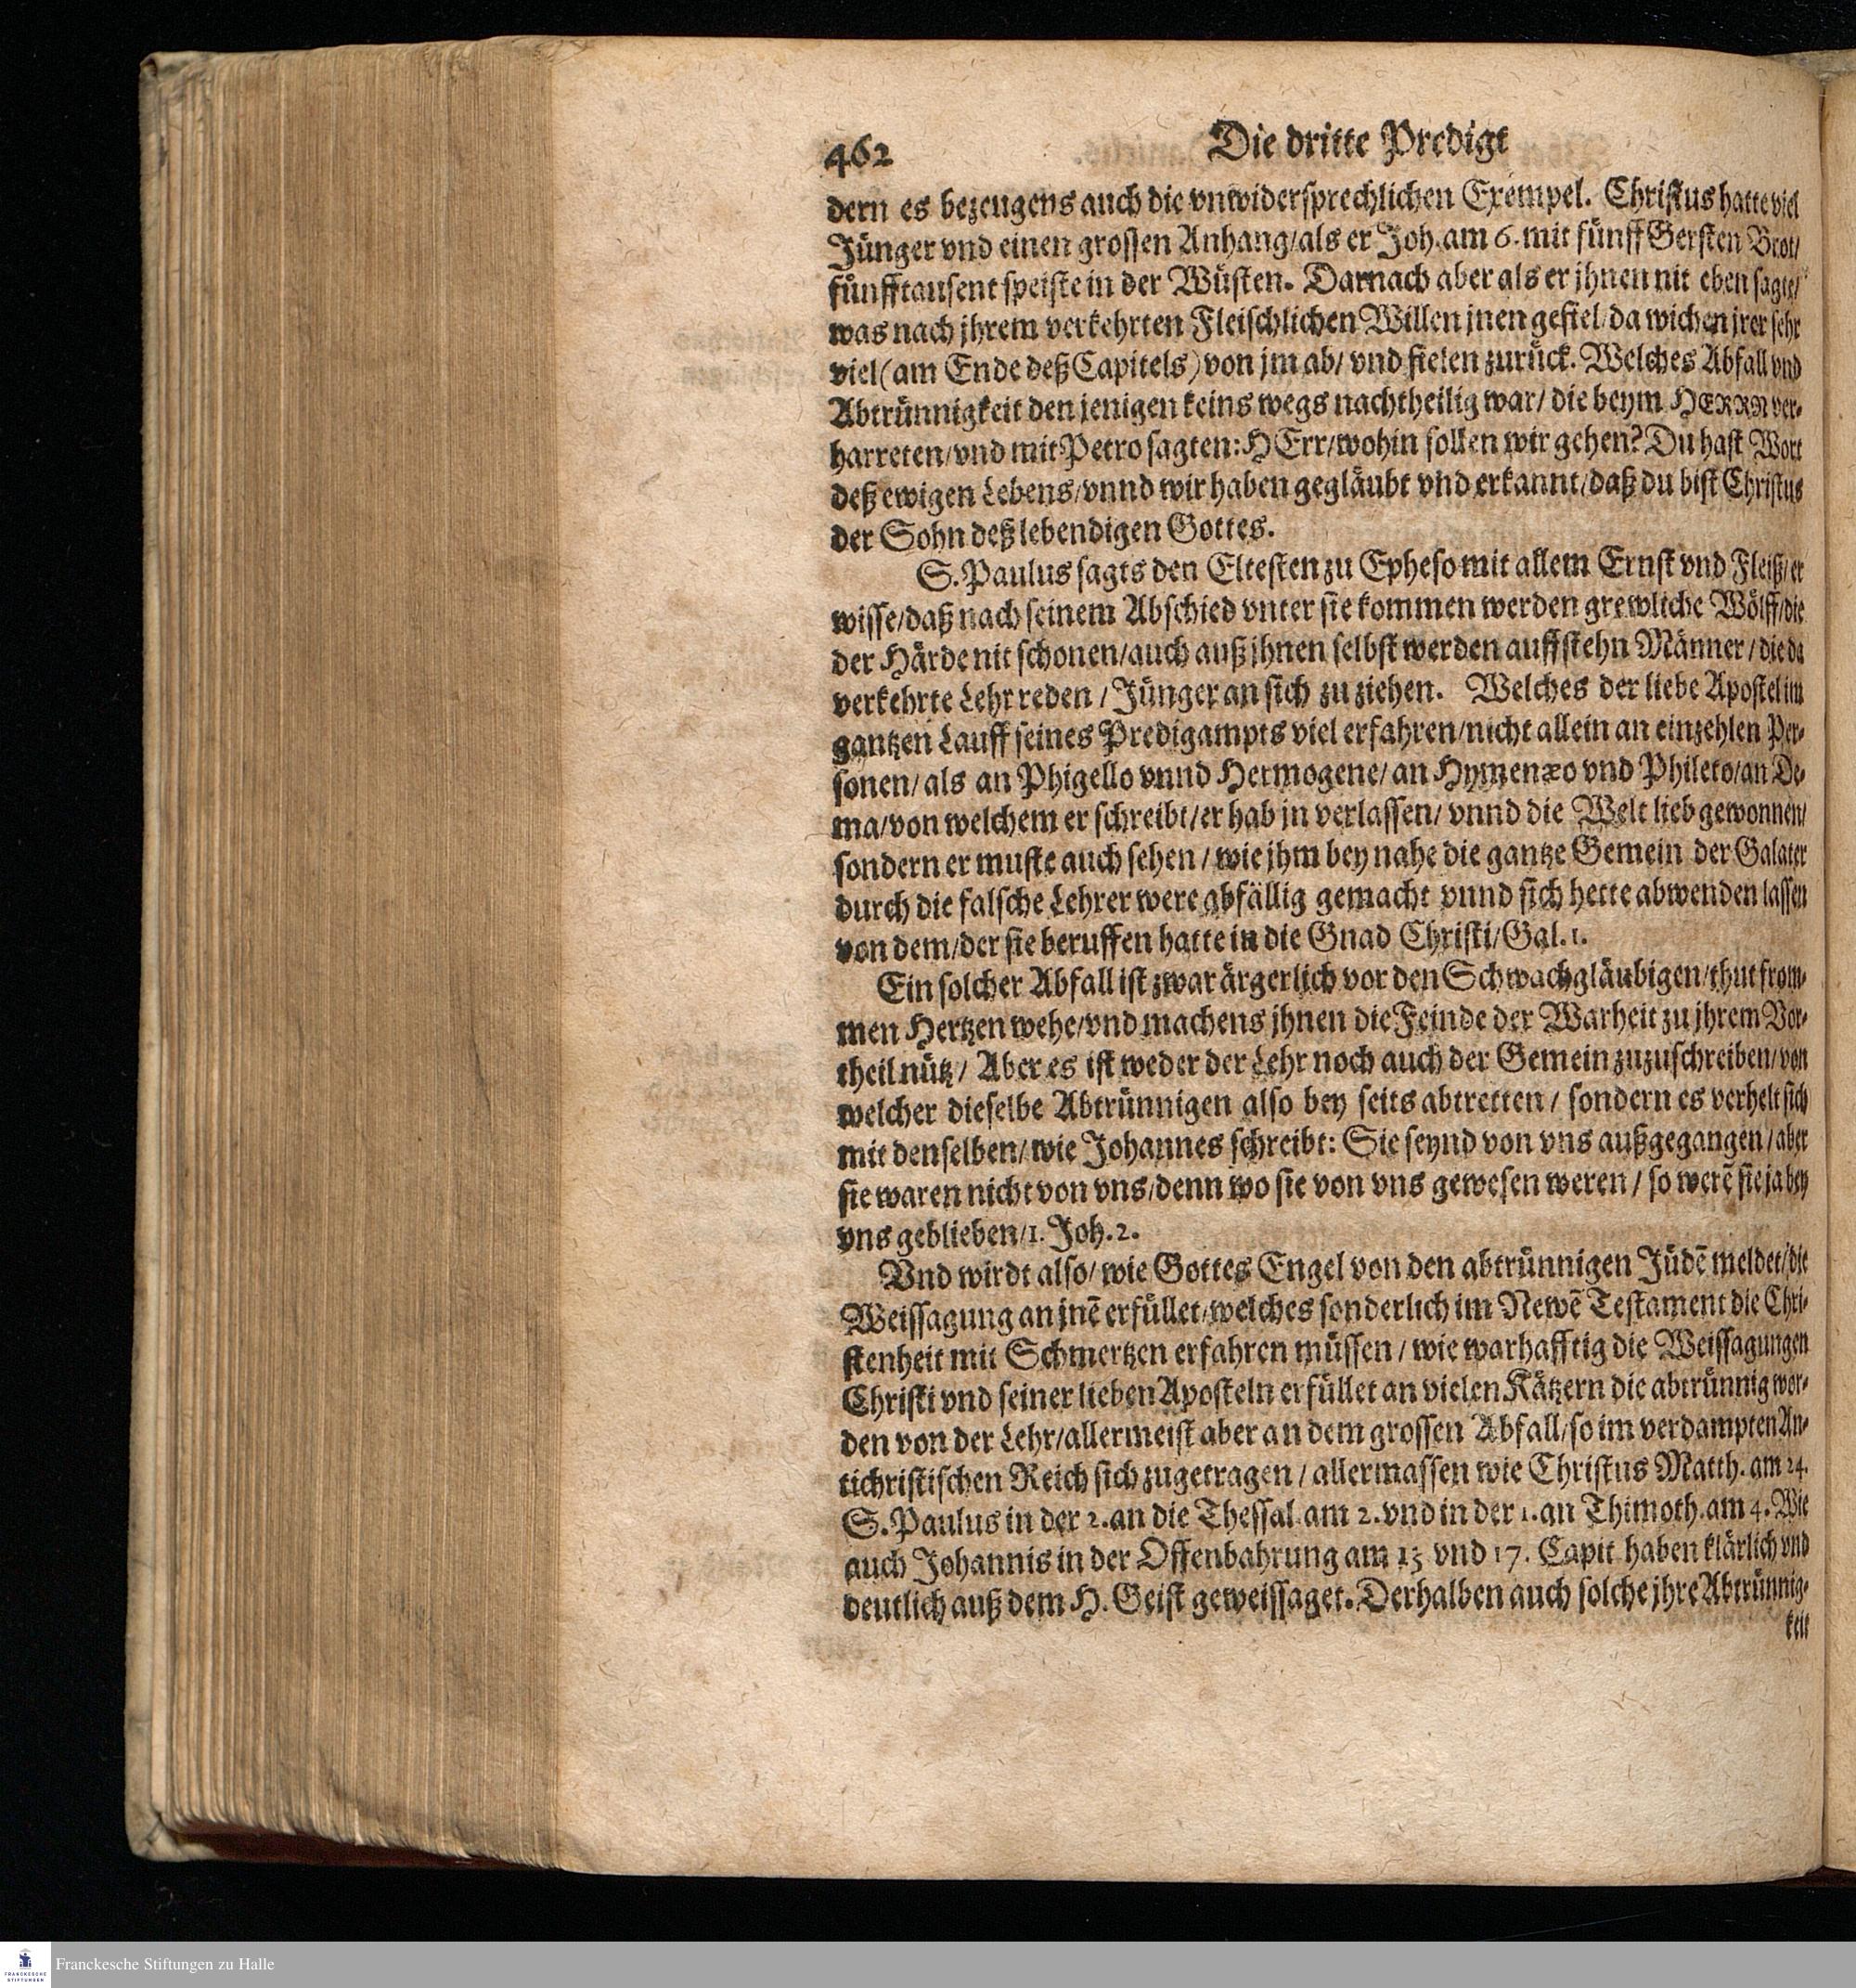 462 Die dritte Predigt
dern es bezeugens auch die vnwidersprechlichen Exempel. Christus hatte viel
Jünger vnd einen grossen Anhang/als er Joh. am 6. mit fünff Gersten Brot/
fünfftausent speiste in der Wüsten. Darnach aber als er jhnen nit eben sagte/
was nach jhrem verkehrten Fleischlichen Willen jnen gefiel/da wichen jrer sehr
viel (am Ende deß Capitels) von jm ab/ vnd fielen zurück. Welches Abfall vnd
Abtrünnigkeit den jenigen keins wegs nachtheilig war/ die beym HERRN ver-
harreten/vnd mit Petro sagten: HErr/wohin sollen wir gehen? Du hast Wort
deß ewigen Lebens/vnnd wir haben gegläubt vnd erkannt/daß du bist Christus
der Sohn deß lebendigen Gottes.
S. Paulus sagts den Eltesten zu Epheso mit allem Ernst vnd Fleiß/er
wisse/daß nach seinem Abschied vnter sie kommen werden grewliche Wölff/die
der Härde nit schonen/auch auß jhnen selbst werden auffstehn Männer/die da
verkehrte Lehr reden/Jünger an sich zu ziehen. Welches der liebe Apostel im
gantzen Lauff seines Predigampts viel erfahren/nicht allein an einzehlen Per-
sonen/ als an Phigello vnnd Hermogene/ an Hymenæo vnd Phileto/an De-
ma/von welchem er schreibt/er hab jn verlassen/ vnnd die Welt lieb gewonnen/
sondern er muste auch sehen/wie jhm bey nahe die gantze Gemein der Galater
durch die falsche Lehrer were abfällig gemacht vnnd sich hette abwenden lassen
von dem/der sie beruffen hatte in die Gnad Christi/Gal. 1.
Ein solcher Abfall ist zwar ärgerlich vor den Schwachgläubigen/thut from-
men Hertzen wehe/vnd machens jhnen die Feinde der Warheit zu jhrem Vor-
theil nütz/ Aber es ist weder der Lehr noch auch der Gemein zuzuschreiben/von
welcher dieselbe Abtrünnigen also bey seits abtretten/ sondern es verhelt sich
mit denselben/wie Johannes schreibt: Sie seynd von vns außgegangen/aber
sie waren nicht von vns/denn wo sie von vns gewesen weren/ so werẽ sie ja bey
vns geblieben/1. Joh. 2.
Vnd wirdt also/ wie Gottes Engel von den abtrünnigen Jüdẽ meldet/die
Weissagung an jnẽ erfüllet/welches sonderlich im Newẽ Testament die Chri-
stenheit mit Schmertzen erfahren müssen/wie warhafftig die Weissagungen
Christi vnd seiner lieben Aposteln erfüllet an vielen Kätzern die abtrünnig wor-
den von der Lehr/allermeist aber an dem grossen Abfall/so im verdampten An-
tichristischen Reich sich zugetragen/allermassen wie Christus Matth. am 24.
S. Paulus in der 2. an die Thessal. am 2. vnd in der 1. an Thimoth. am 4. Wie
auch Johannis in der Offenbahrung am 13 vnd 17. Capit haben klärlich vnd
deutlich auß dem H. Geist geweissaget. Derhalben auch solche jhre Abtrünnig-
keit
Franckesche Stiftungen zu Halle